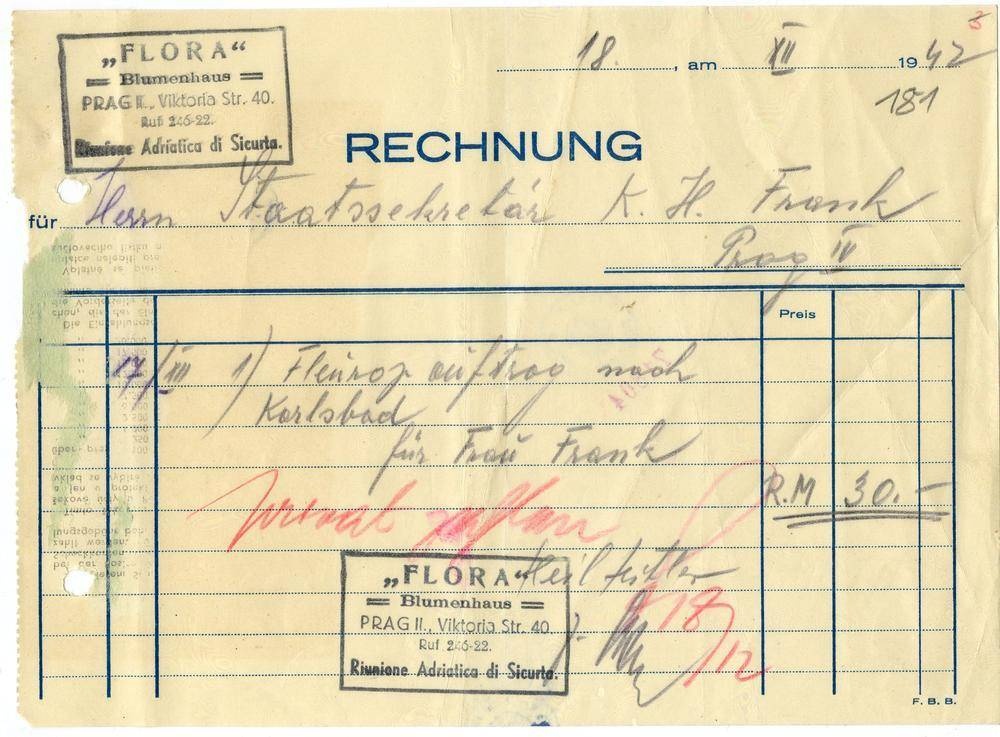 „FLORA“
Blumenhaus
PRAG II., Viktoria Str. 40.
Ruf 246-22.
Riunione Adriatica di Sicurta.
18. , am XII 1942
181
RECHNUNG
für Herrn Staatssekretär K. H. Frank
Prag IV
Preis
17/XII 1) Fleurop auftrag nach
Karlsbad
für Frau Frank
R.M 30.–
privat zahlen
Heil Hitler
„FLORA“
Blumenhaus
PRAG II., Viktoria Str. 40.
Ruf 246-22.
Riunione Adriatica di Sicurta.
18/12
F. B. B.